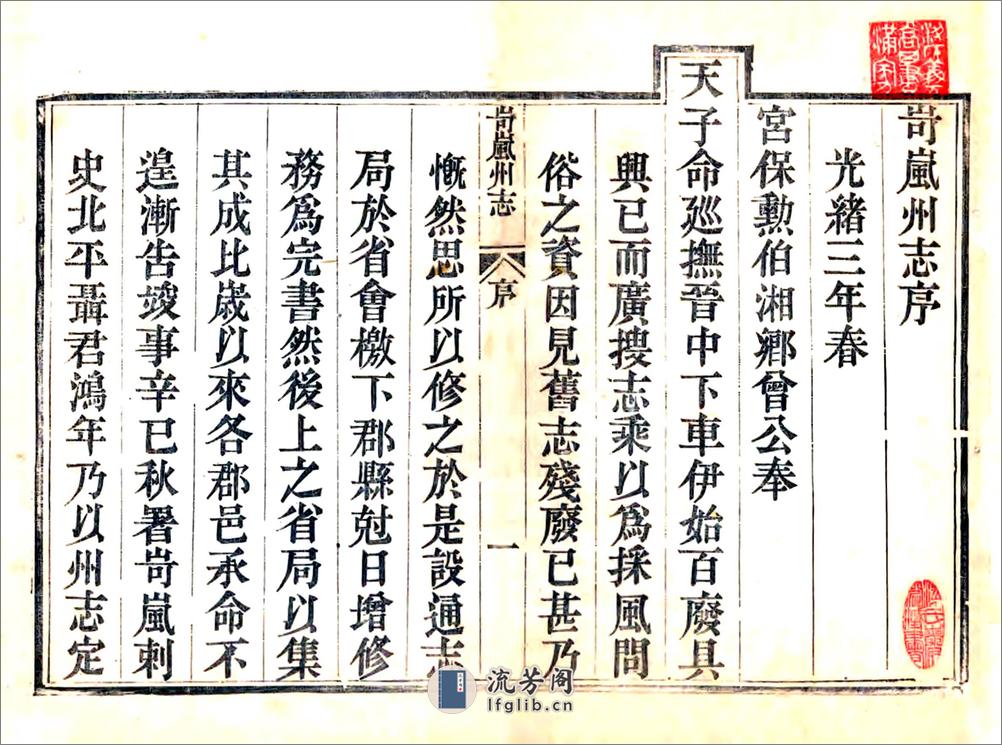 岢嵐州志序
光緒三年春
宮保勳伯湘鄉曾公奉
天子命巡撫晉中下車伊始百廢具
興已而廣搜志乘以爲採風問
俗之資因見舊志殘廢已甚乃
岢嵐州志 序 一
慨然思所以修之於是設通志
局於省會檄下郡縣尅日增修
務爲完書然後上之省局以集
其成比歲以來各郡邑承命不
遑漸告竣事辛巳秋署岢嵐刺
史北平聶君鴻年乃以州志定
流芳阁
lfglib.cn